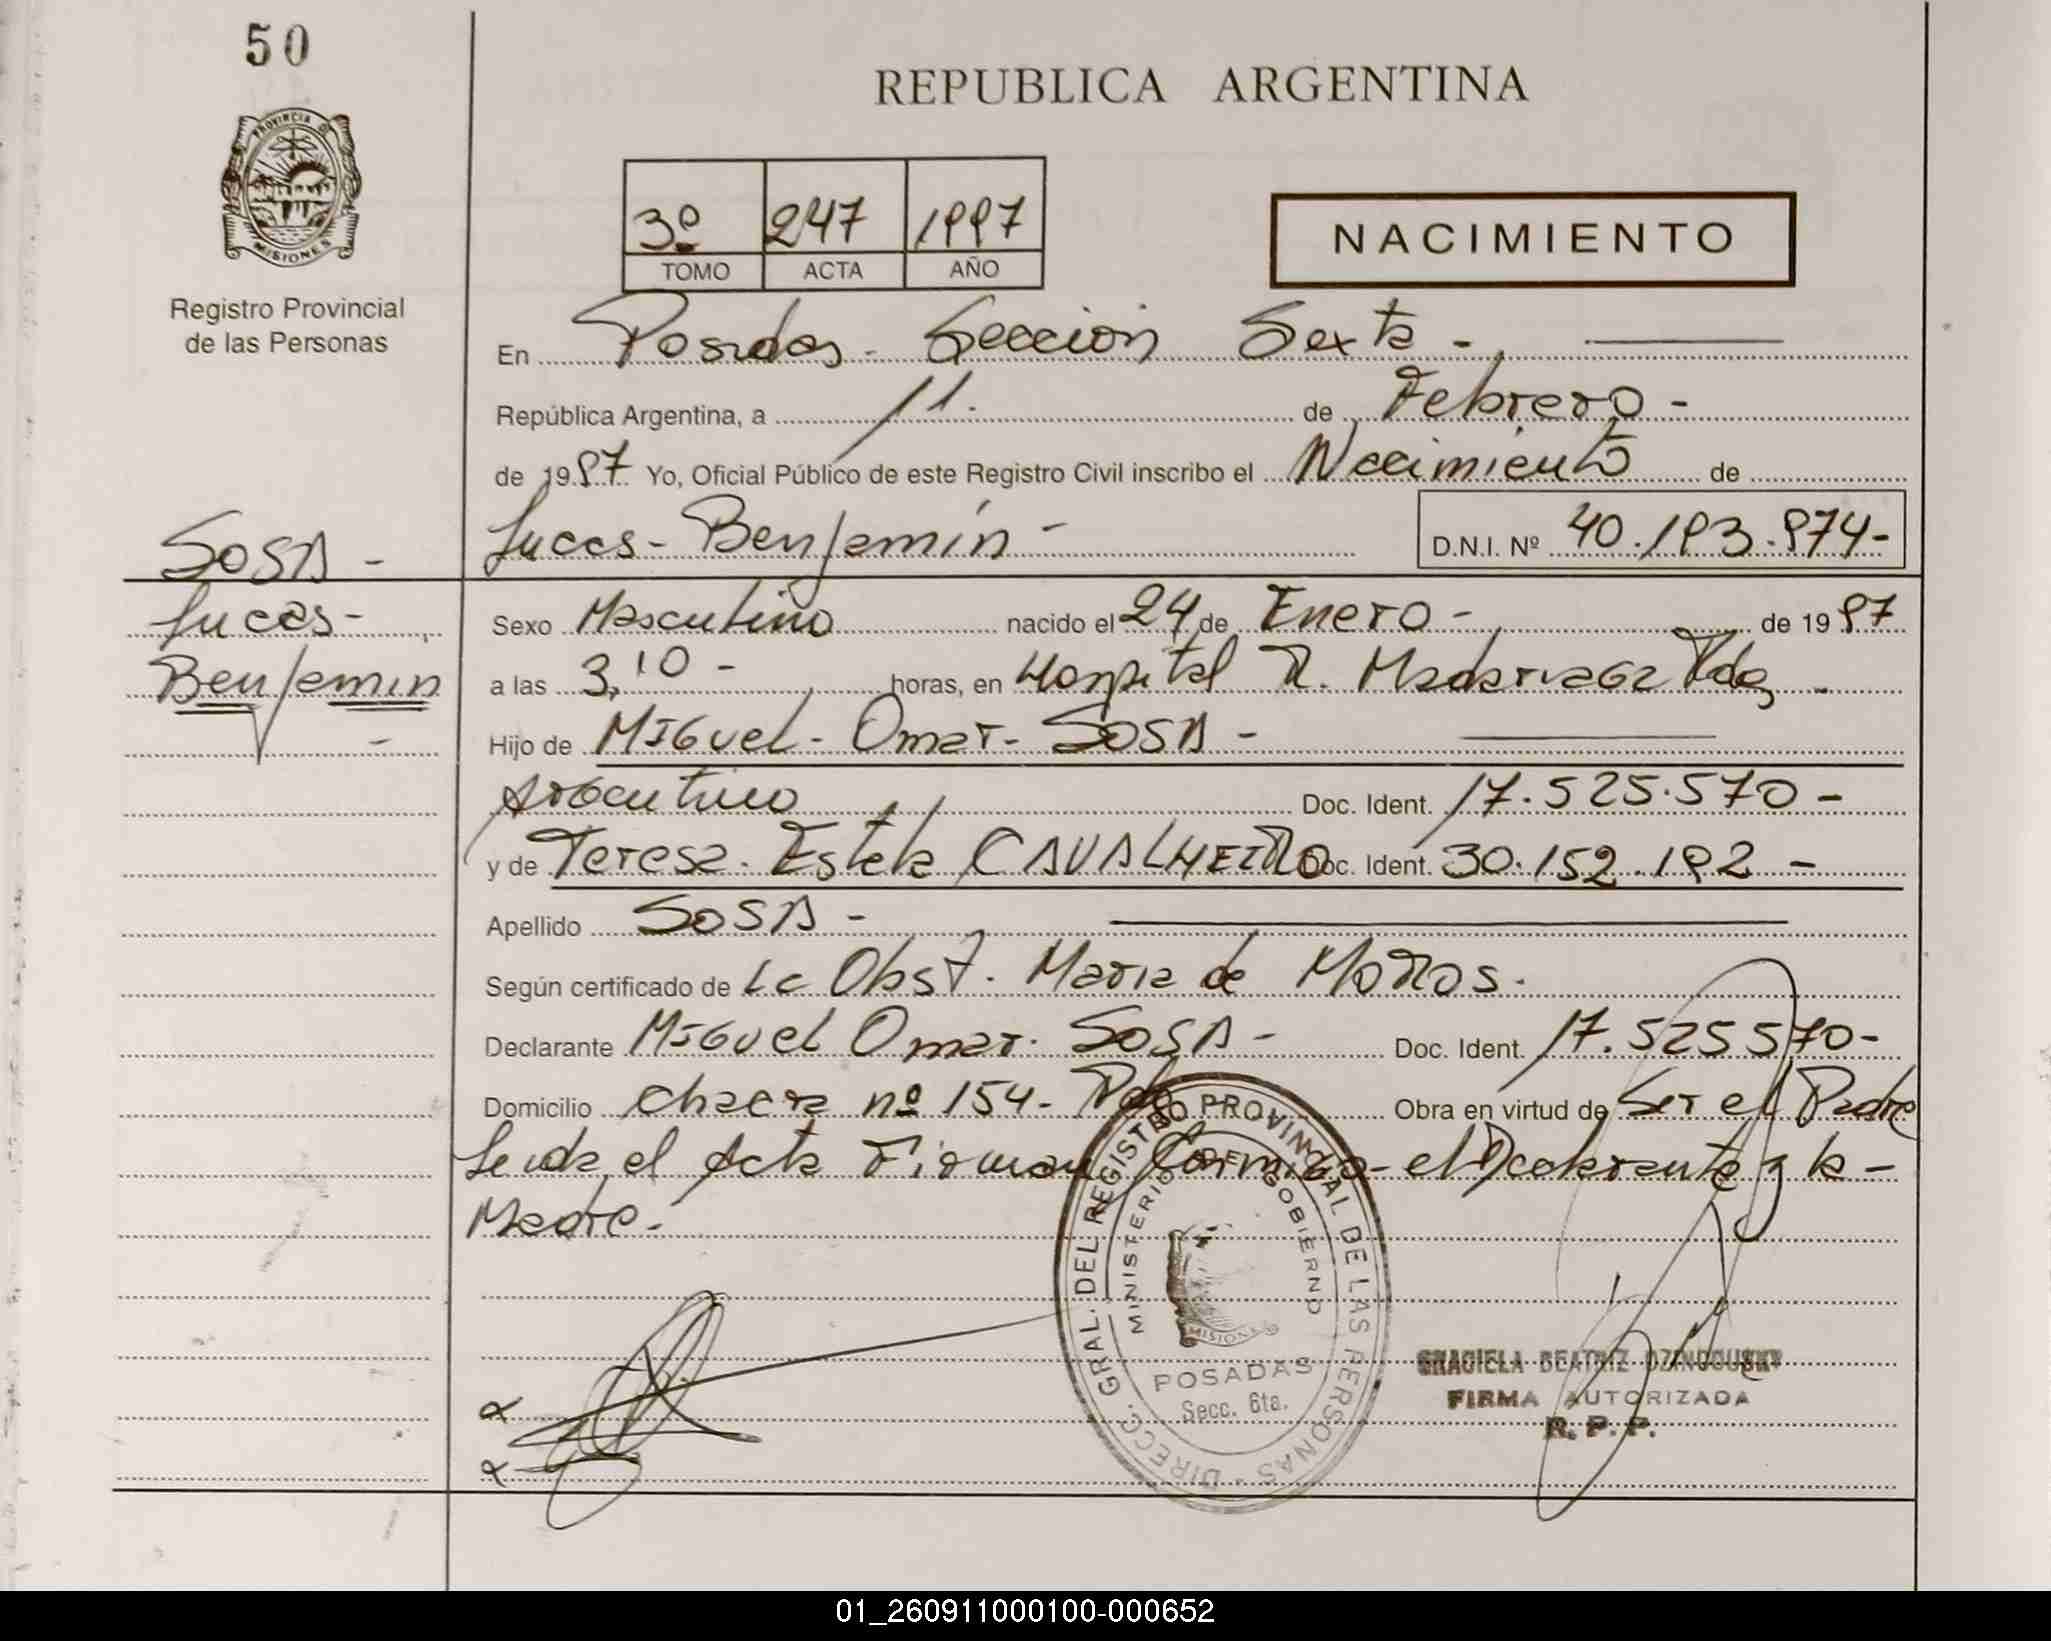 50
REPUBLICA ARGENTINA
PROVINCIA DE
MISIONES
Registro Provincial
de las Personas
3º 247 1997
TOMO ACTA AÑO
NACIMIENTO
En Posadas - Sección Sexta -
República Argentina, a 11. de Febrero -
de 1997 Yo, Oficial Público de este Registro Civil inscribo el Nacimiento de
SOSA - Lucas - Benjamín - D.N.I. Nº 40.193.974-
Lucas - Sexo Masculino nacido el 24 de Enero - de 1997
Benjamin a las 3,10 - horas, en Hospital R. Madariaga Pdas -
Hijo de Miguel - Omar - SOSA -
Argentino Doc. Ident. 17.525.570 -
y de Teresa - Estela CAVALHEIRO Doc. Ident. 30.152.192 -
Apellido SOSA -
Según certificado de La Obst. Maria de Morros.
Declarante Miguel Omar - SOSA - Doc. Ident. 17.525570-
Domicilio Chacra nº 154 - Pdas Obra en virtud de Ser el Padre
Leida el Acta Firman Conmigo - el Declarante y la -
Madre.-
DIRECC. GRAL. DEL REGISTRO PROVINCIAL DE LAS PERSONAS -
MINISTERIO DE GOBIERNO
MISIONES
POSADAS
Secc. 6ta.
GRACIELA BEATRIZ
FIRMA AUTORIZADA
R. P. P.
01_260911000100-000652